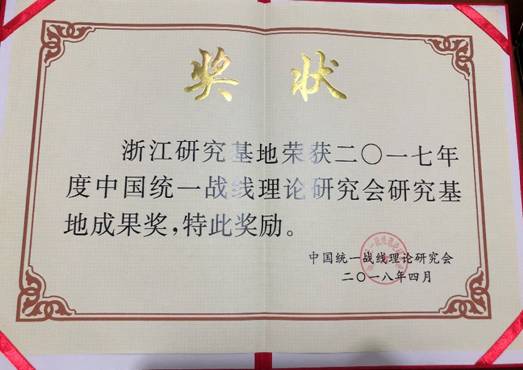 奖状
浙江研究基地荣获二〇一七年
度中国统一战线理论研究会研究基
地成果奖，特此奖励。
中国统一战线理论研究会
二〇一八年四月